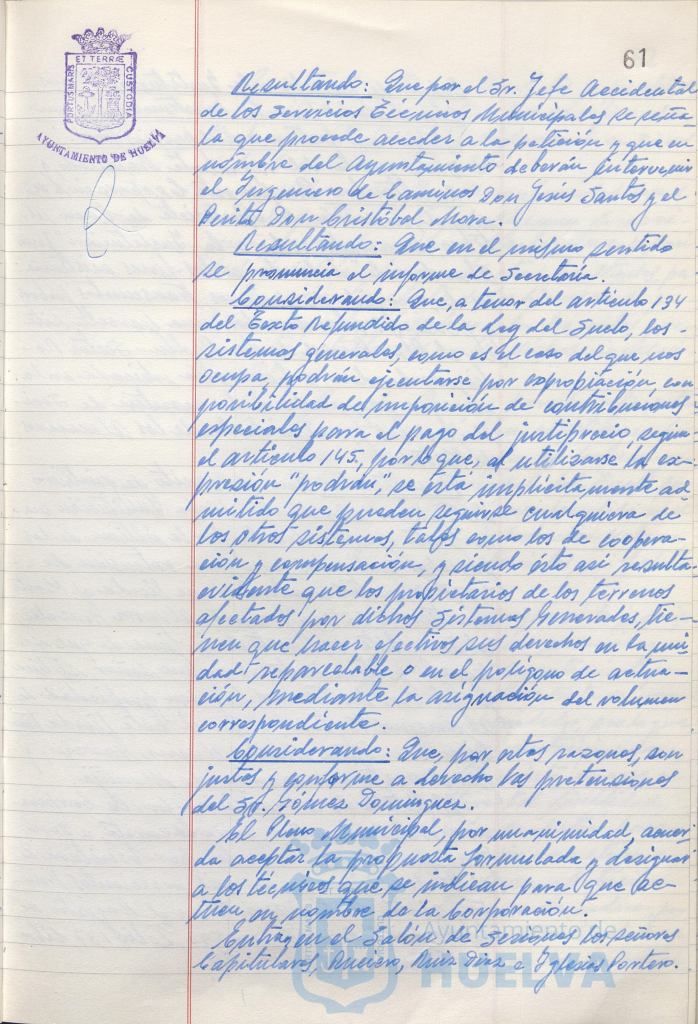 61
ET TERRÆ
PORTUS MARIS
CUSTODIA
AYUNTAMIENTO DE HUELVA
Resultando: Que por el Sr. Jefe Accidental
de los Servicios Técnicos Municipales se seña-
la que procede acceder a la petición y que en
nombre del Ayuntamiento deberán intervenir
el Ingeniero de Caminos Don Jesús Santos y el
Perito Don Cristóbal Mora.
Resultando: Que en el mismo sentido
se pronuncia el informe de Secretaría.
Considerando: Que, a tenor del artículo 134
del Texto Refundido de la Ley del Suelo, los
sistemas generales, como es el caso del que nos
ocupa, podrán ejecutarse por expropiación, con
posibilidad de imposición de contribuciones
especiales para el pago del justiprecio, según
el artículo 145, por lo que, al utilizarse la ex-
presión "podrán", se está implícitamente ad-
mitido que pueden seguirse cualquiera de
los otros sistemas, tales como los de coopera-
ción y compensación, y siendo ésto así resulta
evidente que los propietarios de los terrenos
afectados por dichos Sistemas Generales, tie-
nen que hacer efectivos sus derechos en la uni-
dad reparcelable o en el polígono de actua-
ción, mediante la asignación del volumen
correspondiente.
Considerando: Que, por estas razones, son
justas y conforme a derecho las pretensiones
del Sr. Gómez Domínguez.
El Pleno Municipal, por unanimidad, acuer-
da aceptar la propuesta formulada y designar
a los técnicos que se indican para que ac-
túen, en nombre de la Corporación.
Entran en el Salón de Sesiones los señores
Capitulares, Ruciero, Ruiz Díaz e Iglesias Portero.
Ayuntamiento de
HUELVA